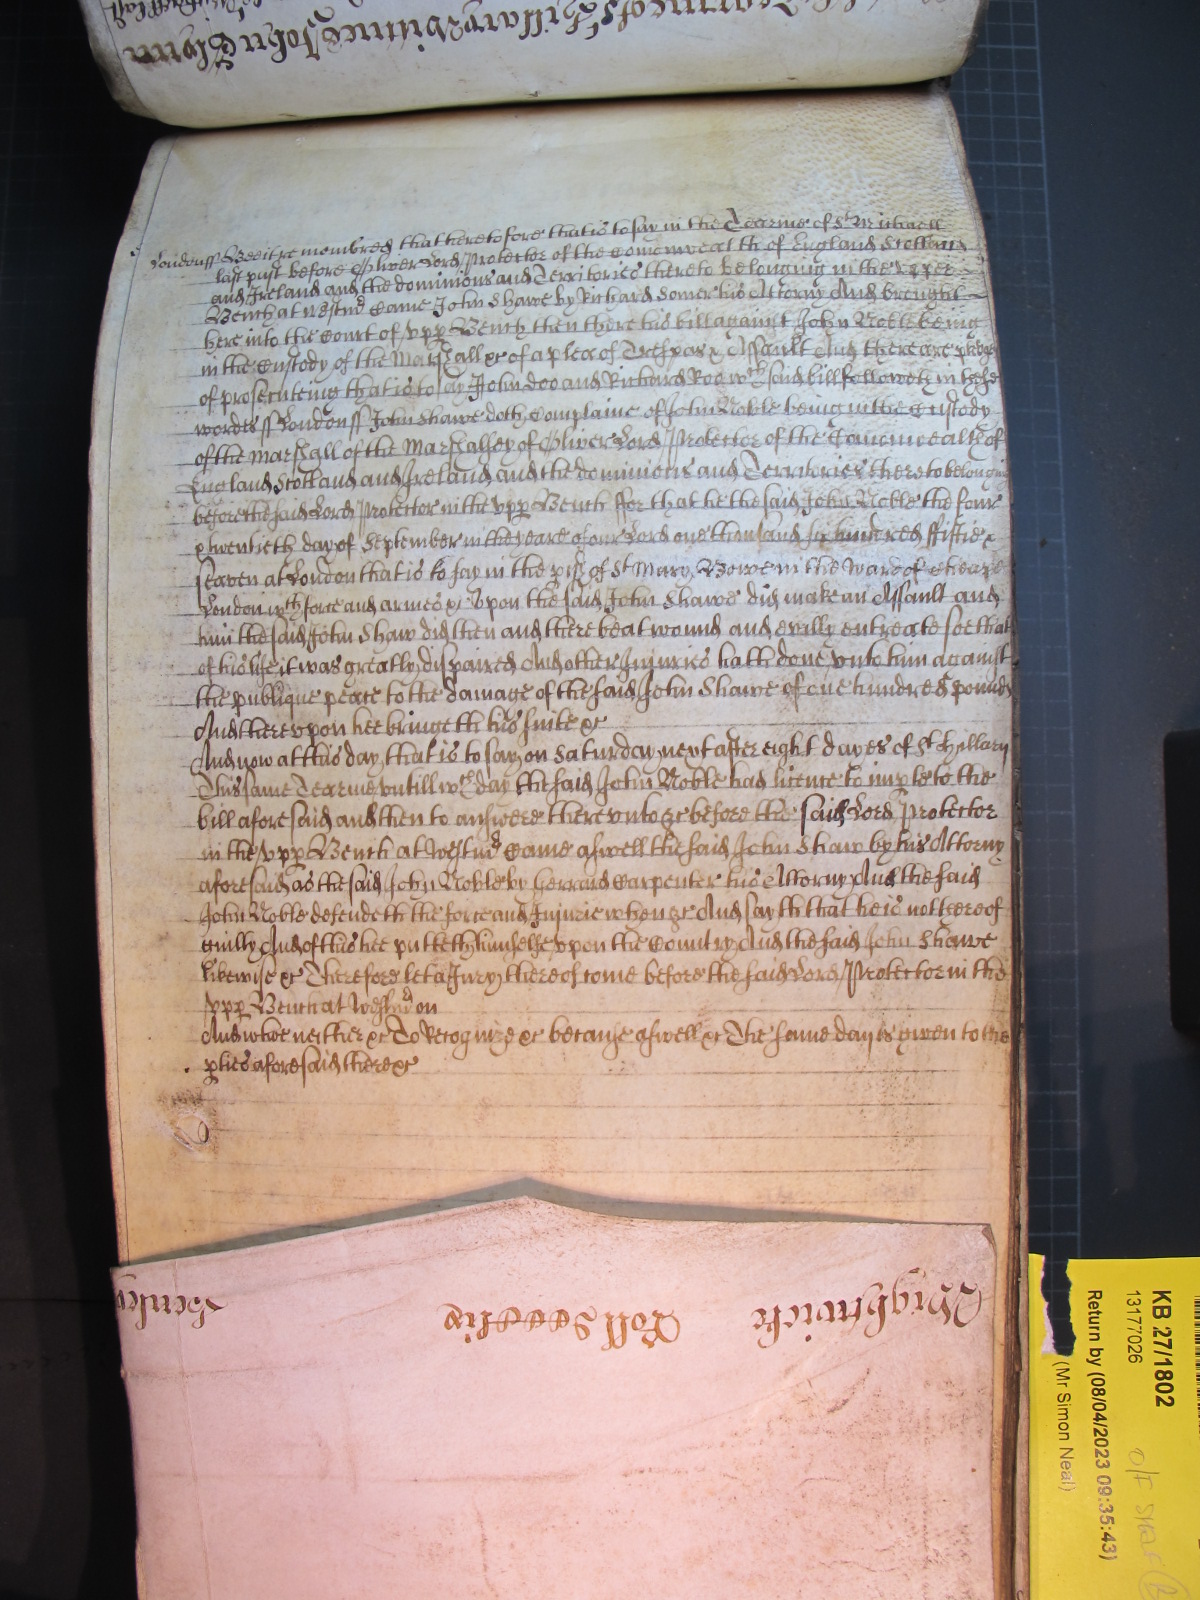 the Tearme of St Hillary Witnes John Glynn
Londonss Bee it remembred that heretofore that is to say in the Tearme of St Michaell
last past before Oliver Lord Protector of the Comonwealth of England Scotland
and Ireland and the dominions and Territories thereto belonging in the upper
Bench at Westmr Came John Shawe by Richard Somer his Attorny And brought
here into the Court of upp Bench then there his bill against John Noble being
in the Custody of the Marshall &c of a plea of Trespas & Assault And there are pledges
of prosecuteing that is to say John Doo and Richard Roo wch said bill followeth in these
wordes ss Londonss John Shawe doth Complaine of John Noble being in the Custody
of the Marshall of the Marshalsey of Oliver Lord Protector of the Comonwealth of
England Scotland and Ireland and the dominions and Territories thereto belonging
before the said Lord Protector in the upp Bench ffor that he the said John Noble the four
& twentieth day of September in the yeare of our Lord one thousand six hundred fiftie &
seaven at London that is to say in the pish of St Mary Bowe in the Ward of Cheape
London wth force and armes &c Upon the said John Shawe did make an Assault and
him the said John Shaw did then and there beat wound and evilly entreate soe that
of his life it was greatly dispaired And other Injuries hath done unto him against
the publique peace to the damage of the said John Shawe of one hundred pounds
And thereupon hee bringeth his suite &c
And now at this day that is to say on Saturday next after eight dayes of St Hillary
This same Tearme untill wch day the said John Noble had licence to imple to the
bill aforesaid and then to answere thereunto &c before the said Lord Protector
in the upp Bench at Westmr Came aswell the said John Shaw by his Attorny
aforesaid as the said John Noble by Gerrard Carpenter his Attorny And the said
John Noble defendeth the force and Injurie when &c And sayth that he is not thereof
guilty And of this hee putteth himselfe upon the Country And the said John Shawe
likewise &c Therefore let a Jury thereof come before the said Lord Protector in the
upp Bench at Westmr on
And who neither &c To Recognize &c because aswell &c The same day is given to the
pties aforesaid there &c
Wightwicke Roll Henley
KB 27/1802
13177026
Return by (08/04/2023 09:35:43)
(Mr Simon Neal)